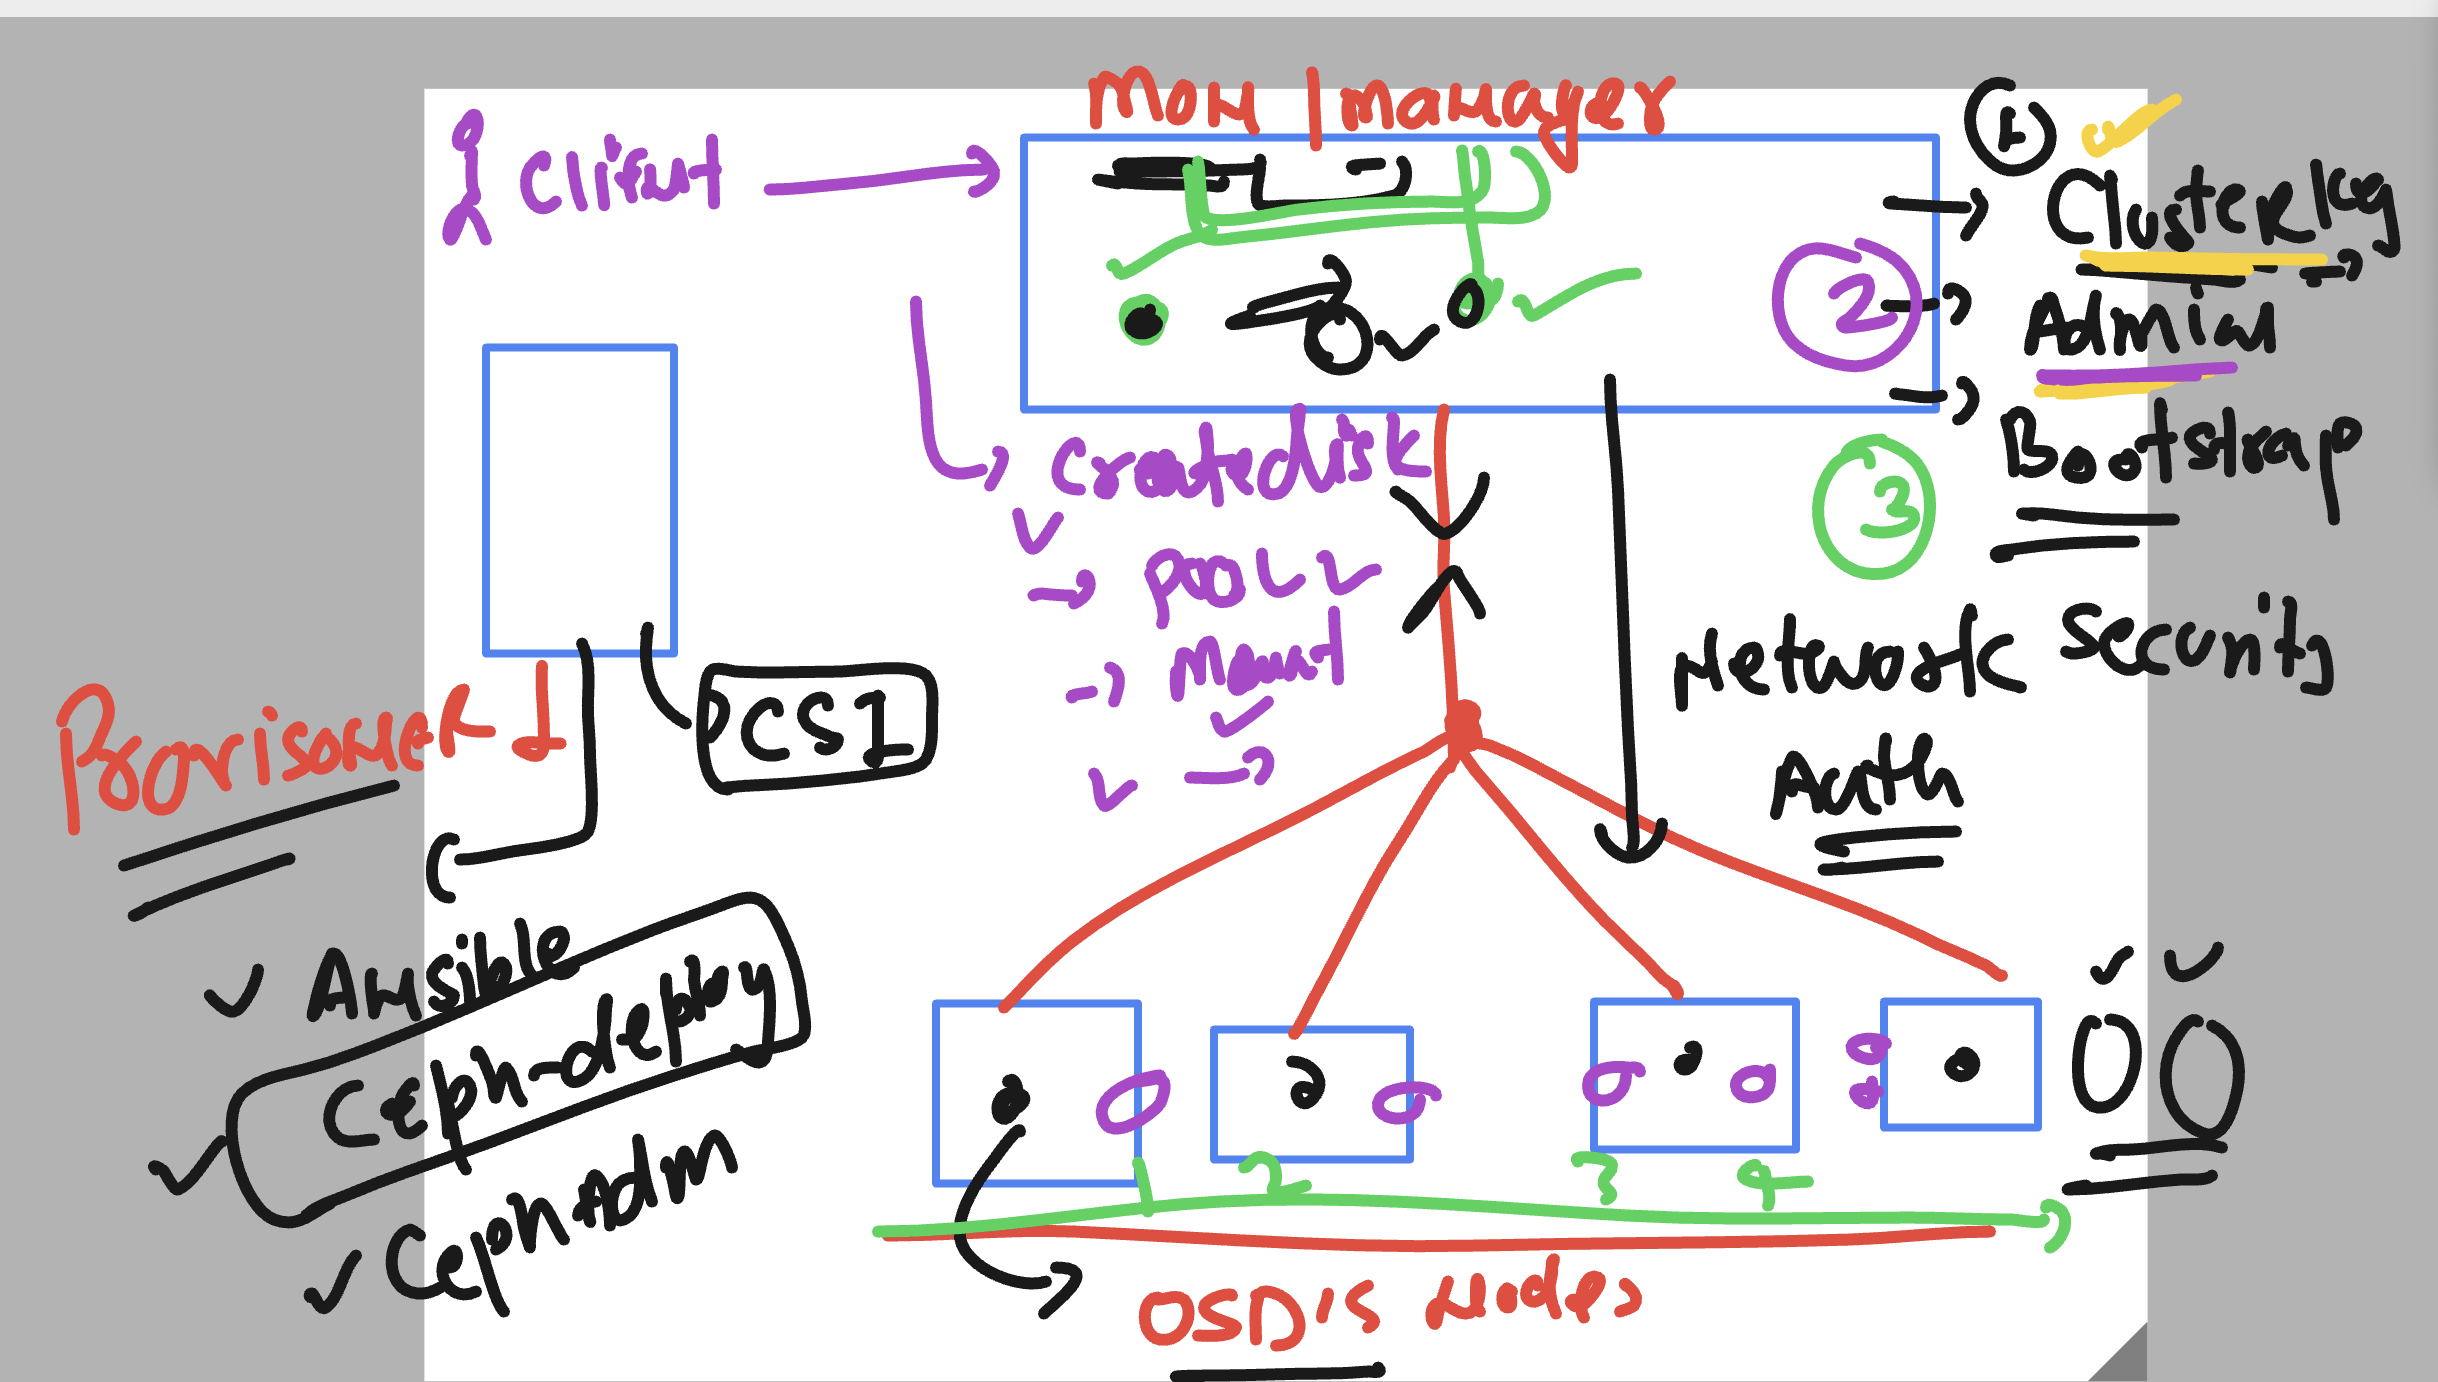 Mon | manager
client
1
Cluster key
2
Admin
Bootstrap
3
create disk
→ pool
→ Mount
→
Network Security
Auth
CSI
Ansible
Ceph-deploy
CephAdm
1 2 3 4
OSD's Nodes